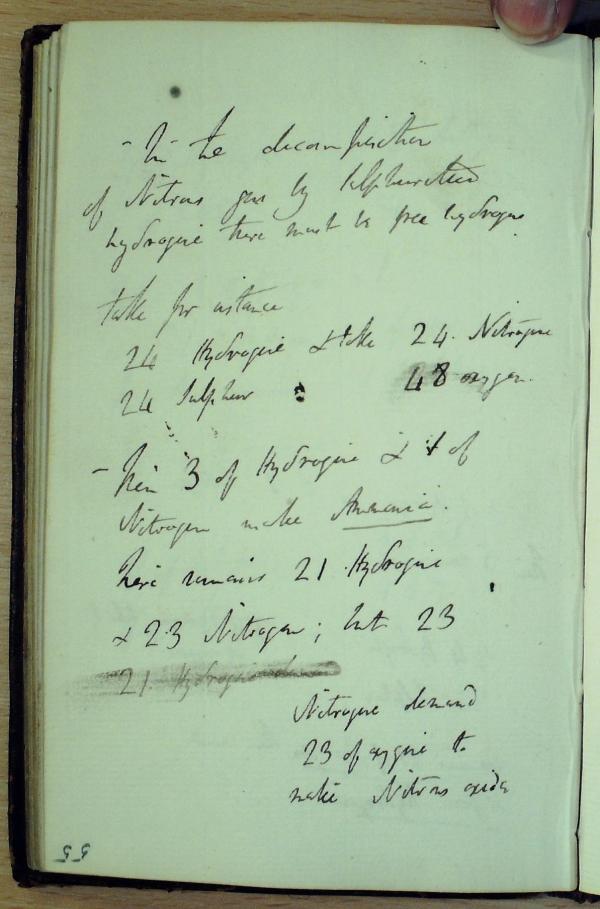 - In the decomposition
of Nitrous gas by sulphuretted
hydrogene there must be free hydrogene
take for instance
24 Hydrogene & take 24. Nitrogene
24 Sulphur 48 oxygen.
- Then 3 of Hydrogene & 1 of
Nitrogen make Ammonia.
here remains 21 Hydrogene
& 23 Nitrogen; but 23
21. Hydrogene
Nitrogene demand
23 of oxygene to
make Nitrous oxide
55